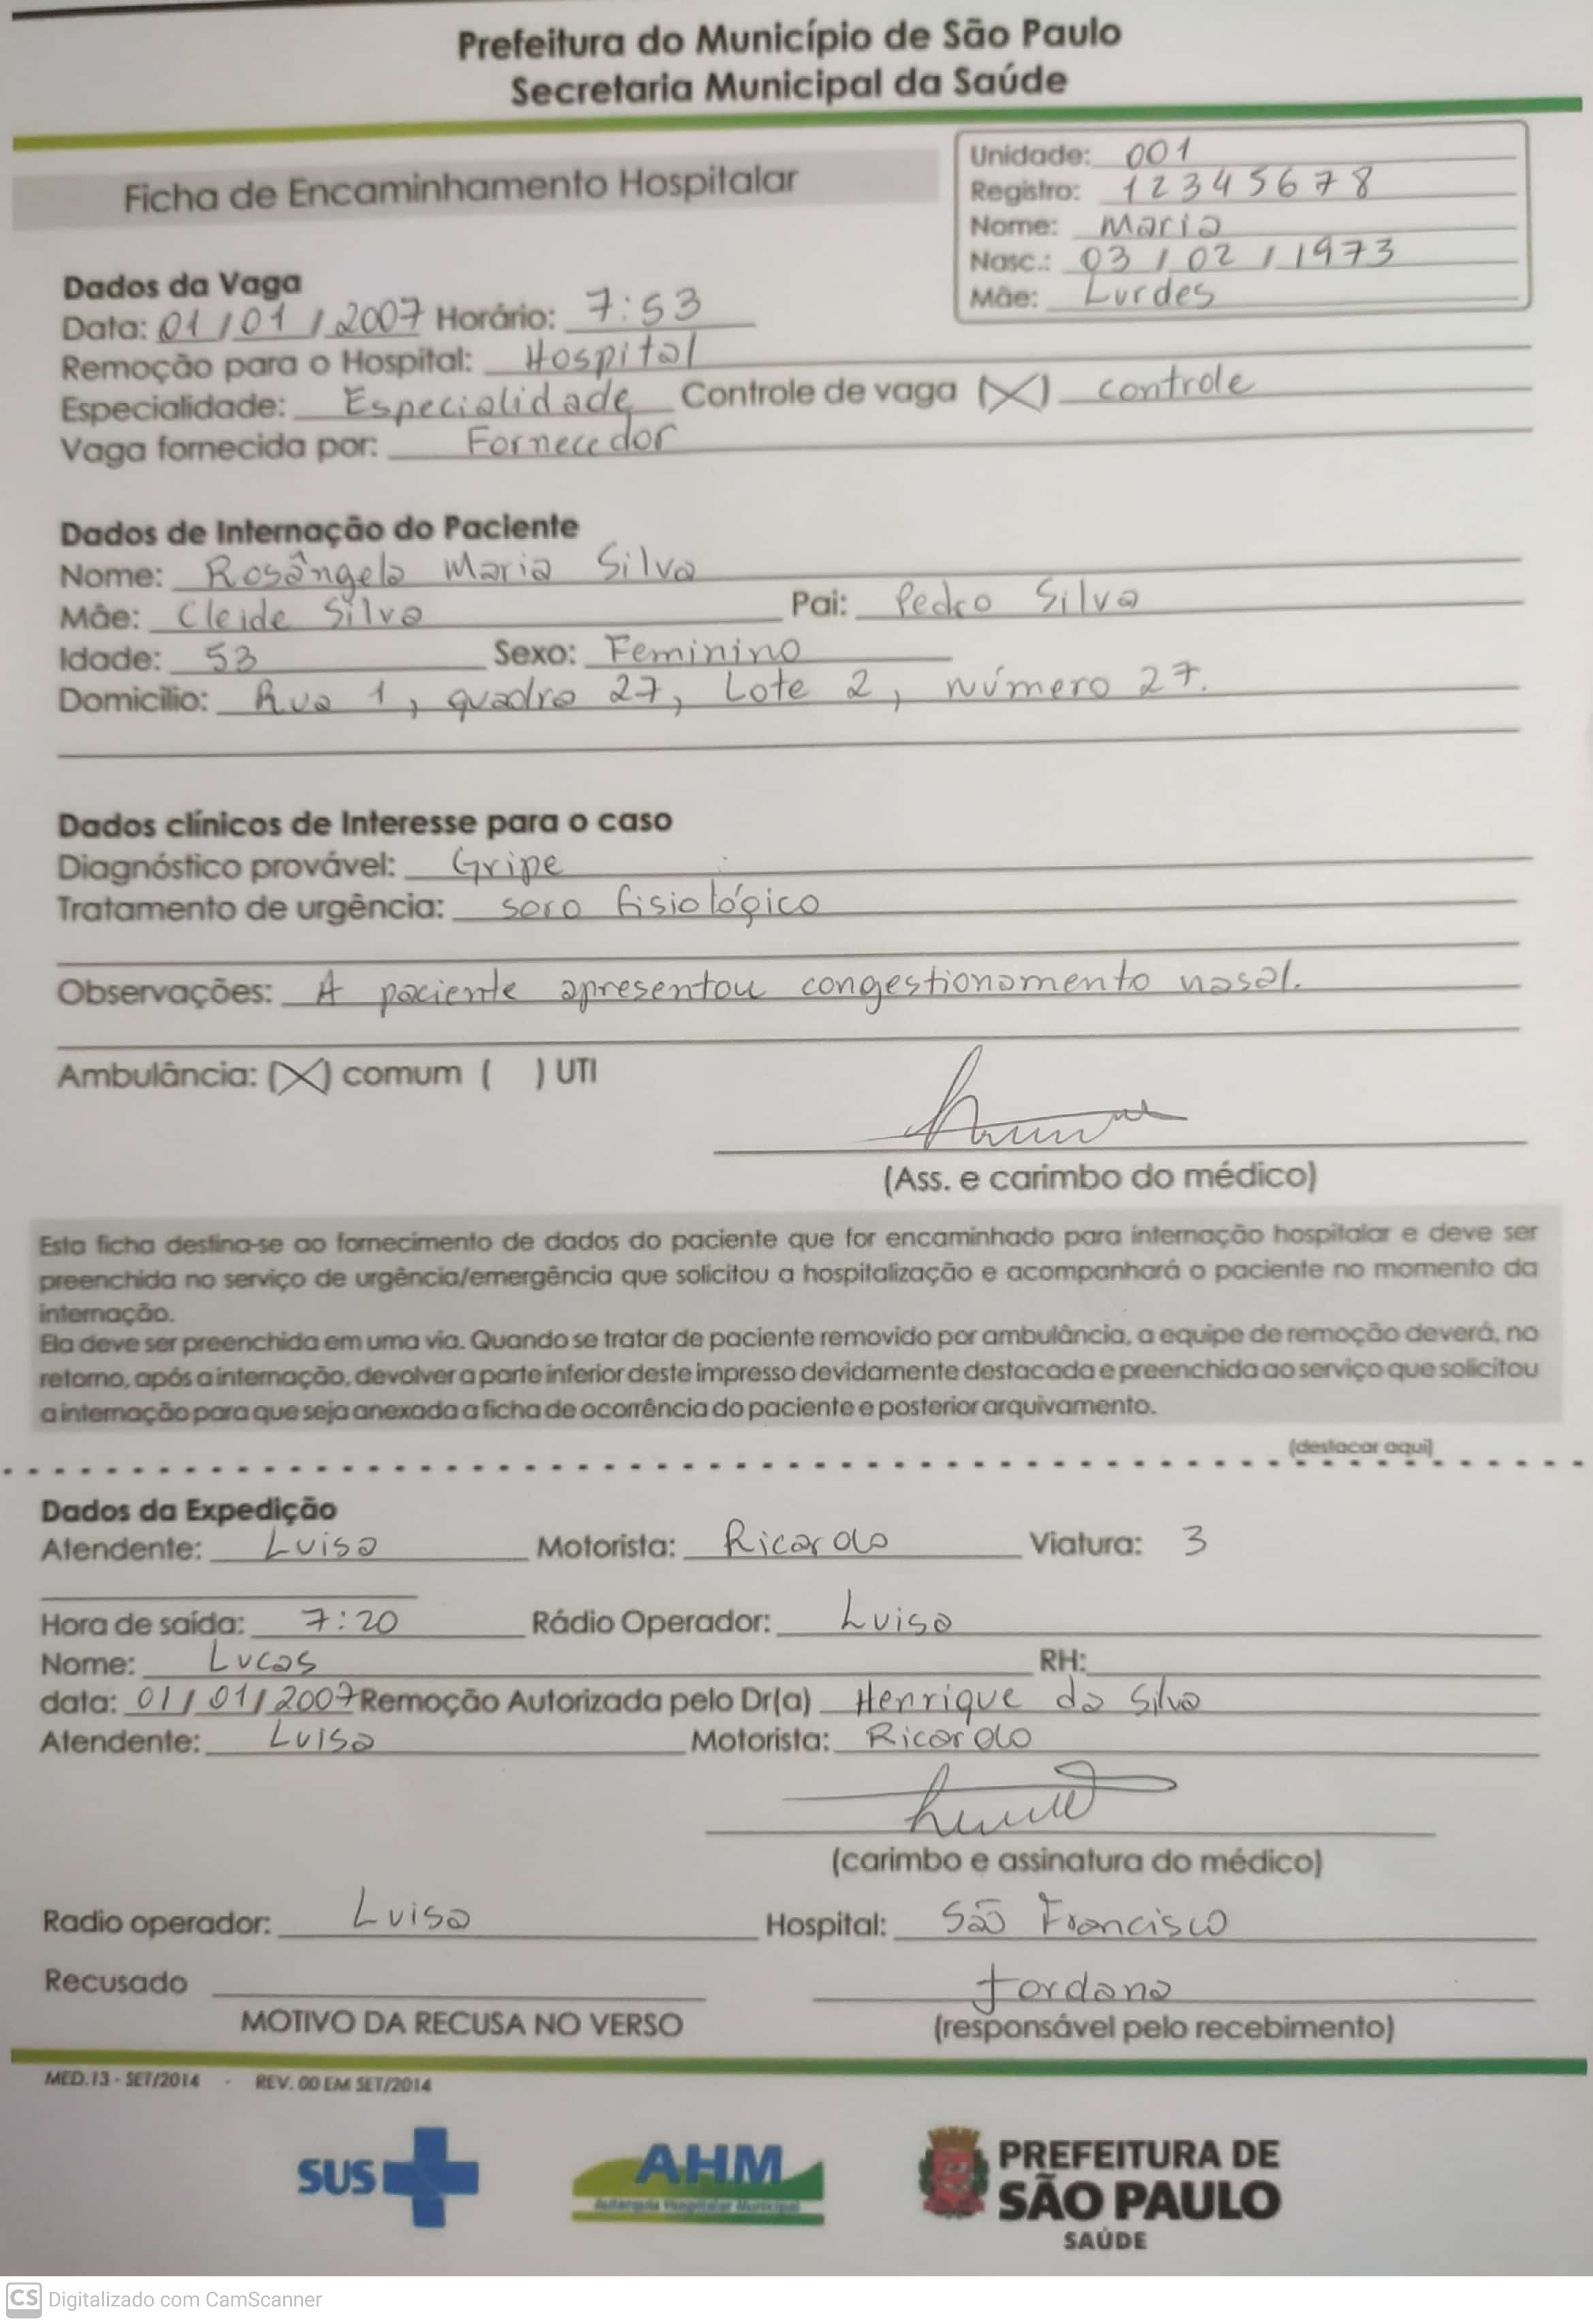 Prefeitura do Município de São Paulo
Secretaria Municipal da Saúde
Ficha de Encaminhamento Hospitalar
Unidade: 001
Registro: 12345678
Nome: Maria
Nasc.: 03 / 02 / 1973
Mãe: Lurdes
Dados da Vaga
Data: 01 / 01 / 2007 Horário: 7:53
Remoção para o Hospital: Hospital
Especialidade: Especialidade Controle de vaga (X) controle
Vaga fornecida por: Fornecedor
Dados de Internação do Paciente
Nome: Rosângela Maria Silva
Mãe: Cleide Silva Pai: Pedro Silva
Idade: 53 Sexo: Feminino
Domicílio: Rua 1, quadra 27, Lote 2, número 27.
Dados clínicos de Interesse para o caso
Diagnóstico provável: Gripe
Tratamento de urgência: soro fisiológico
Observações: A paciente apresentou congestionamento nasal.
Ambulância: (X) comum ( ) UTI
(Ass. e carimbo do médico)
Esta ficha destina-se ao fornecimento de dados do paciente que for encaminhado para internação hospitalar e deve ser
preenchida no serviço de urgência/emergência que solicitou a hospitalização e acompanhará o paciente no momento da
internação.
Ela deve ser preenchida em uma via. Quando se tratar de paciente removido por ambulância, a equipe de remoção deverá, no
retorno, após a internação, devolver a parte inferior deste impresso devidamente destacada e preenchida ao serviço que solicitou
a internação para que seja anexada a ficha de ocorrência do paciente e posterior arquivamento.
(destacar aqui)
Dados da Expedição
Atendente: Luisa Motorista: Ricardo Viatura: 3
Hora de saída: 7:20 Rádio Operador: Luisa
Nome: Lucas RH:
data: 01 / 01 / 2007 Remoção Autorizada pelo Dr(a) Henrique da Silva
Atendente: Luisa Motorista: Ricardo
(carimbo e assinatura do médico)
Radio operador: Luisa Hospital: São Francisco
Recusado Jordana
MOTIVO DA RECUSA NO VERSO (responsável pelo recebimento)
MED.13 - SET/2014 - REV. 00 EM SET/2014
SUS AHM PREFEITURA DE
Autarquia Hospitalar Municipal SÃO PAULO
SAÚDE
CS Digitalizado com CamScanner